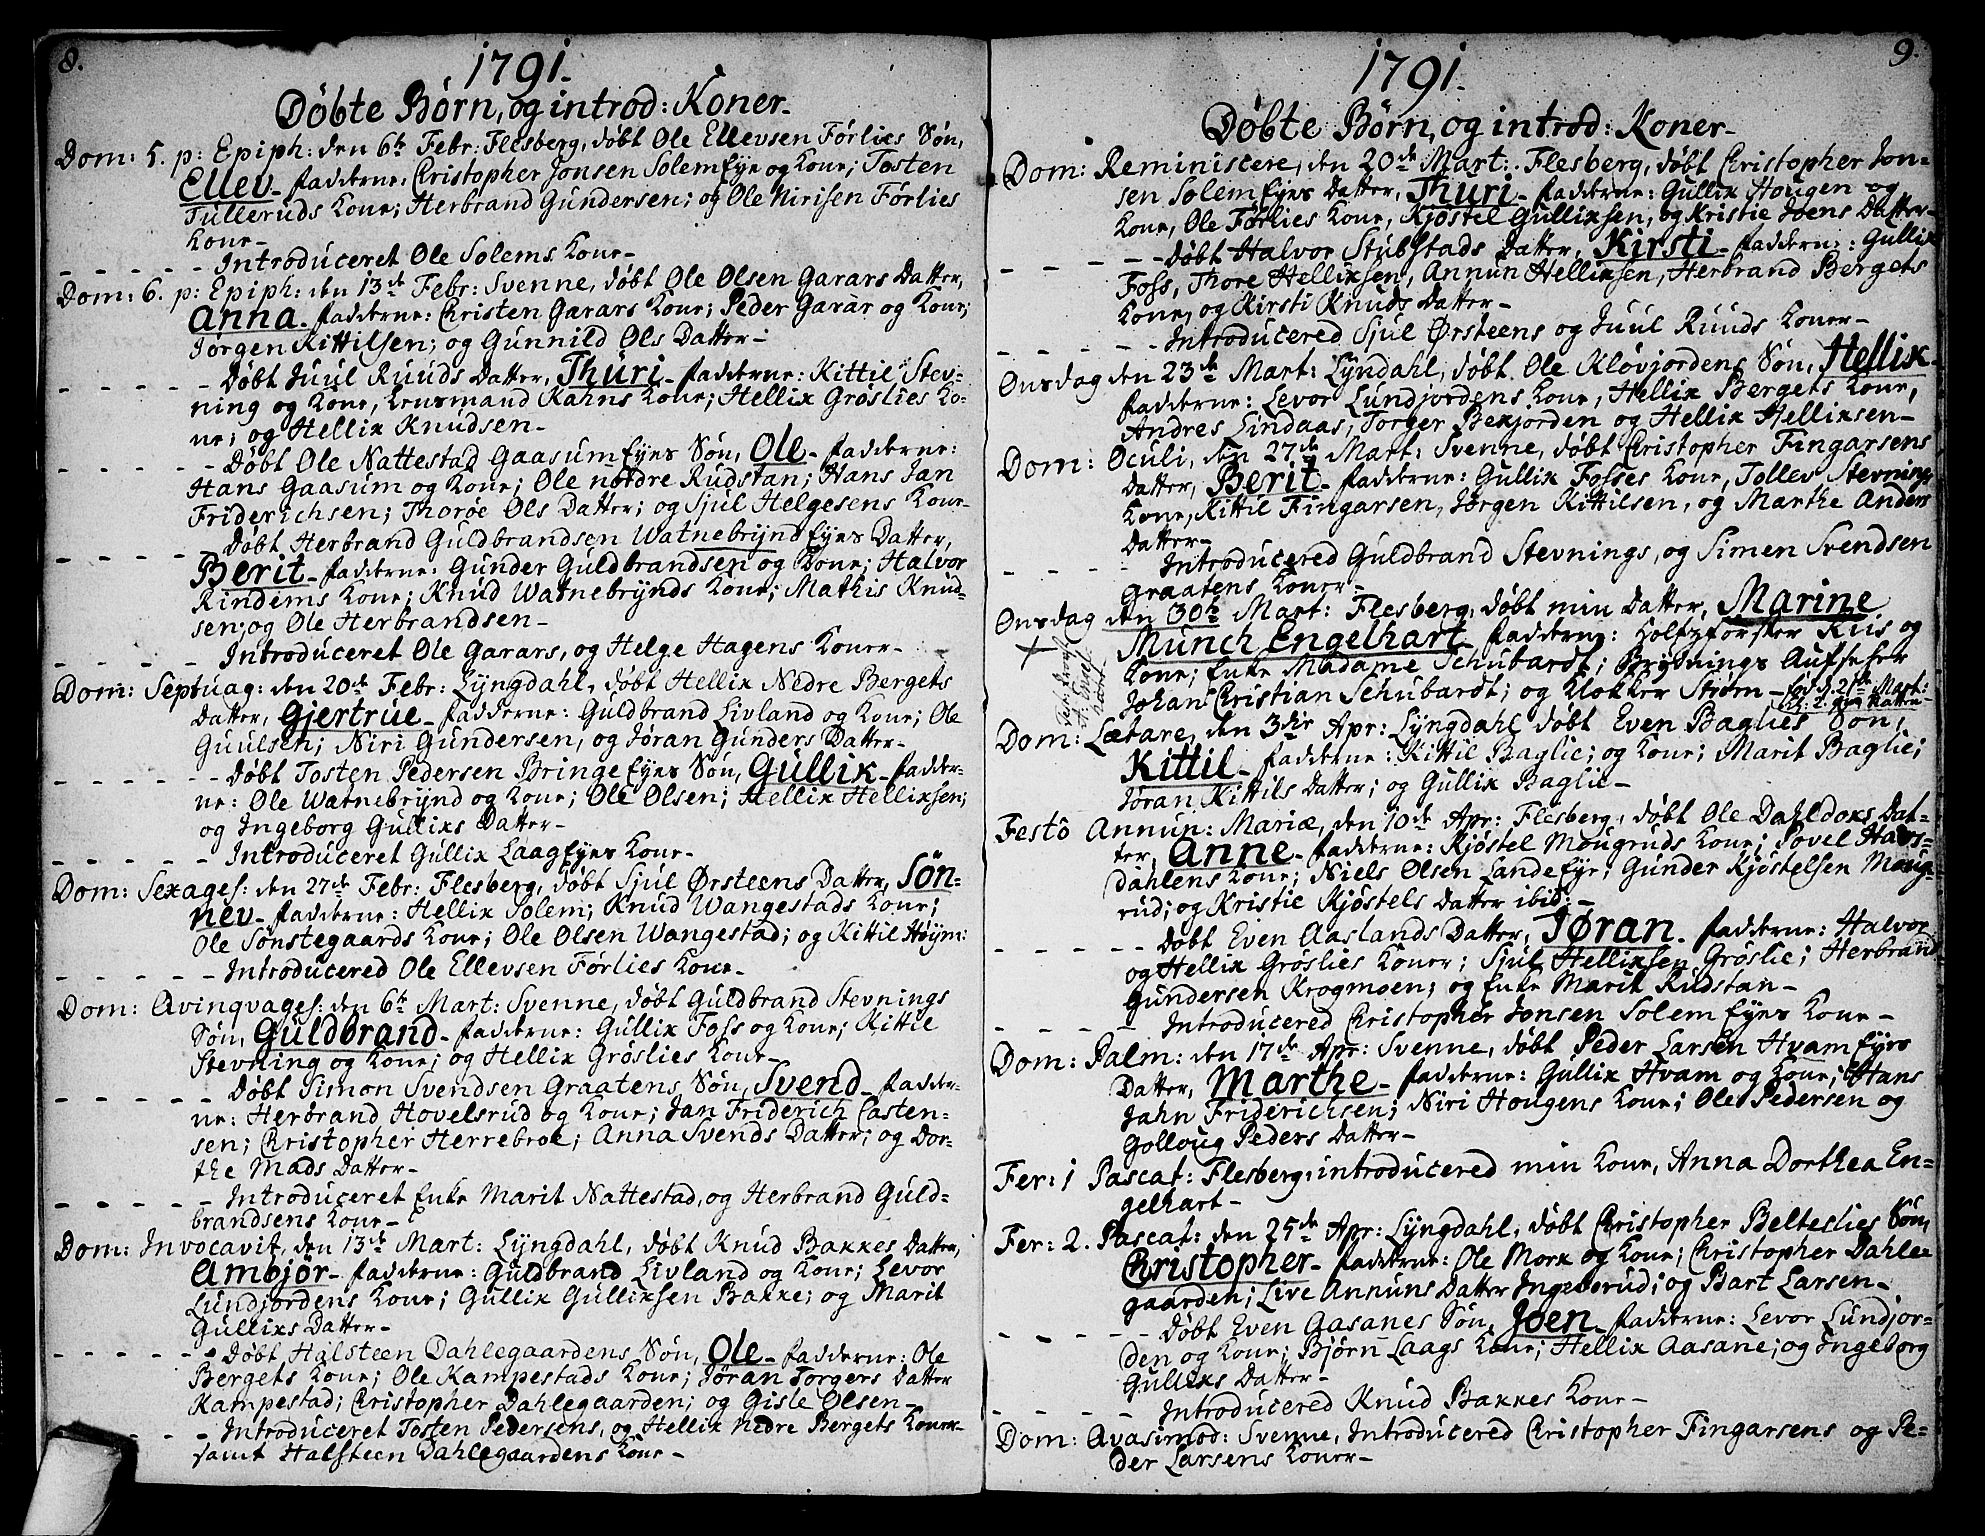 8.
1791.
Døbte Børn, og introd: Koner.
Dom: 5. p: Epiph: den 6te Febr: Flesberg, døbt Ole Ellevsen Førlies Søn,
Ellev. fadderne: Christopher Jonsen Solem Eye og Kone; Tosten
Tulleruds Kone; Herbrand Gundersen; og Ole Nirisen Førlies
Kone.
- - - - - Introduceret Ole Solems Kone.
Dom: 6. p: Epiph: den 13de Febr: Svenne, døbt Ole Olsen Garaas Datter,
Anna. fadderne: Christen Garaas Kone; Peder Garaas og Kone;
Jørgen Kittilsen; og Gunnild Ols Datter.
- - - - - Døbt Juul Ruuds Datter, Thuri. fadderne: Kittil Stev-
ning og Kone, Lensmand Kahns Kone; Hellik Grøslies Ko-
ne; og Hellik Knudsen.
- - - - - Døbt Ole Nattestad Gaasum Eyes Søn, Ole. fadderne:
Hans Gaasum og Kone; Ole nordre Rudstan; Hans Jan
Friderichsen; Thorøe Ols Datter; og Sjul Helgesens Kone.
- - - - - Døbt Herbrand Guldbrandsen Watnebrynd Eyes Datter,
Berit. fadderne: Gunder Guldbrandsen og Kone; Halvor
Rindems Kone; Knud Watnebrynds Kone; Mathis Knud-
sen; og Ole Herbrandsen.
- - - - Introduceret Ole Garaas, og Helge Hagens Koner.
Dom: Septuag: den 20de Febr: Lyngdahl, døbt Hellik Nedre Bergets
Datter, Gjertrue. fadderne: Guldbrand Livland og Kone; Ole
Guulsen; Niri Gundersen, og Jøran Gunders Datter.
- - - - - Døbt Tosten Pedersen Bringe Eyes Søn, Gullik. fadder-
ne: Ole Watnebrynd og Kone; Ole Olsen; Hellik Helliksen;
og Ingeborg Gulliks Datter.
- - - - - Introduceret Gullik Laag Eyes Kone.
Dom: Sexages: den 27de Febr: Flesberg, døbt Sjul Ørsteens Datter, Søn-
nev. fadderne: Hellik Solem; Knud Wangestads Kone;
Ole Sønstegaards Kone; Ole Olsen Wangestad; og Kittil Høym:
- - - - - Introducered Ole Ellevsen Førlies Kone.
Dom: Qvinqvages: den 6te Mart: Svenne, døbt Guldbrand Stevnings
Søn, Guldbrand. fadderne: Gullik Foss og Kone; Kittil
Stevning og Kone; og Hellik Grøslies Kone.
- - - - - Døbt Simon Svendsen Graatens Søn, Svend. fadder-
ne: Herbrand Hovelsrud og Kone; Jan Friderich Casten-
sen; Christopher Herrebroe; Anna Svends Datter; og Dor-
the Mads Datter.
- - - - - Introduceret Enke Marit Nattestad, og Herbrand Guld-
brandsens Kone.
Dom: Invocavit, den 13de Mart: Lyngdahl, døbt Knud Bakkes Datter,
Ambjør. fadderne: Guldbrand Livland og Kone; Levor
Lundjordens Kone; Gullik Gulliksen Bakke; og Marit
Gulliks Datter.
- - - - - Døbt Halsteen Dahlegaardens Søn, Ole. fadderne: Ole
Bergets Kone; Ole Kampestads Kone; Jøran Torgers Datter
Kampestad; Christopher Dahlegaarden; og Gisle Olsen.
- - - Introduceret Tosten Pedersens, og Hellik nedre Bergets Koner
samt Halsteen Dahlegaardens Kone.
9.
1791.
Døbte Børn, og introd: Koner.
Dom: Reminiscere, den 20de Mart: Flesberg, døbt Christopher Jon-
sen Solem Eyes Datter, Thuri. fadderne: Gullik Hougen og
Kone, Ole Førlies Kone, Kjøstel Gulliksen, og Kristie Joens Datter.
- - - - - Døbt Halvor Stubstads Datter, Kirsti. fadderne: Gullik
Foss, Thore Helliksen, Annun Helliksen, Herbrand Bergets
Kone, og Kirsti Knuds Datter.
- - - - - Introducered Sjul Ørsteens og Juul Ruuds Koner.
Onsdag den 23de Mart: Lyndahl, døbt Ole Kløvjordens Søn, Hellik.
fadderne: Levor Lundjordens Kone, Hellik Bergets Kone,
Andres Lindaas, Torger Bekjorden og Hellik Helliksen.
Dom: Oculi, den 27de Mart: Svenne, døbt Christopher Fingarsens
Datter, Berit. fadderne: Gullik Fosses Kone, Tollev Stevnings
Kone, Kittil Fingarsen, Jørgen Kittilsen, og Marthe Anders
Datter.
- - - - Introducered Guldbrand Stevnings, og Simen Svendsen
Graatens Koner.
Onsdag den 30te Mart: Flesberg, døbt min Datter, Marine
Munch Engelhart. fadderne: Holtzførster Riis og
Kone; Enke Madame Schubardt; Brydnings Aufseher
Johan Christian Schubardt; og Klokker Strøm.
Dom: Lætare, den 3die Apr: Lyngdahl døbt Even Baglies Søn,
Kittil. fadderne: Kittil Baglie; og Kone; Marit Baglie;
Jøran Kittils Datter; og Gullik Baglie.
Festo Annun: Mariæ, den 10de Apr: Flesberg, døbt Ole Dahldoks Dat-
ter, Anne. fadderne: Kjøstel Mougruds Kone; Povel Haavs-
dahlens Kone; Niels Olsen Lande Eye; Gunder Kjøstelsen Moug-
rud; og Kristie Kjøstels Datter ibid:
- - - - - Døbt Even Aaslands Datter, Jøran. fadderne: Halvor
og Hellik Grøslies Koner; Sjul Helliksen Grøslie; Herbrand
Gundersen Krogmoen; og Enke Marit Rudstan.
- - - - Introducered Christopher Jonsen Solem Eyes Kone.
Dom: Palm: den 17de Apr: Svenne, døbt Peder Larsen Hvam Eyes
Datter, Marthe. fadderne: Gullik Hvam og Kone; Hans
Jahn Friderichsen; Niri Hougens Kone; Ole Pedersen og
Golloug Peders Datter.
Fer: 1 Pascat: Flesberg, introducered min Kone, Anna Dorthea En-
gelhart.
Fer: 2. Pascat: den 25de Apr: Lyngdahl, døbt Christopher Belteslies Søn,
Christopher. fadderne: Ole Mork og Kone; Christopher Dahle-
gaarden; Live Annuns Datter Ingebørud; og Bart Larsen.
- - - - - Døbt Even Aasanes Søn, Joen. fadderne: Levor Lundjor-
den og Kone; Bjørn Laags Kone; Hellik Aasane; og Ingeborg
Gulliks Datter.
- - - - Introducered Knud Bakkes Kone.
Dom: Qvasimod: Svenne, Introducered Christopher Fingarsens og Pe-
der Larsens Koner.